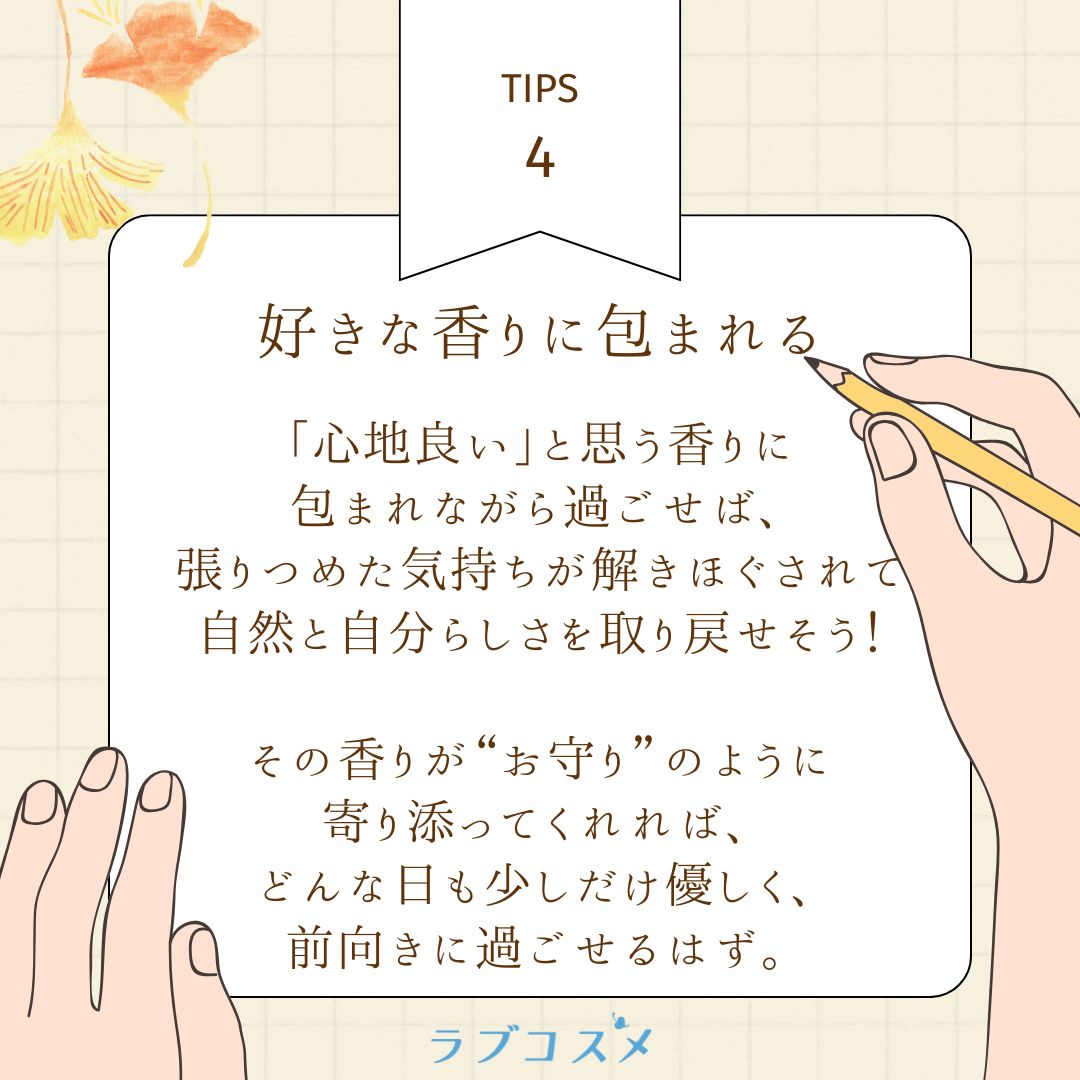 TIPS
4
好きな香りに包まれる
「心地良い」と思う香りに
包まれながら過ごせば、
張りつめた気持ちが解きほぐされて
自然と自分らしさを取り戻せそう!
その香りが“お守り”のように
寄り添ってくれれば、
どんな日も少しだけ優しく、
前向きに過ごせるはず。
ラブコスメ